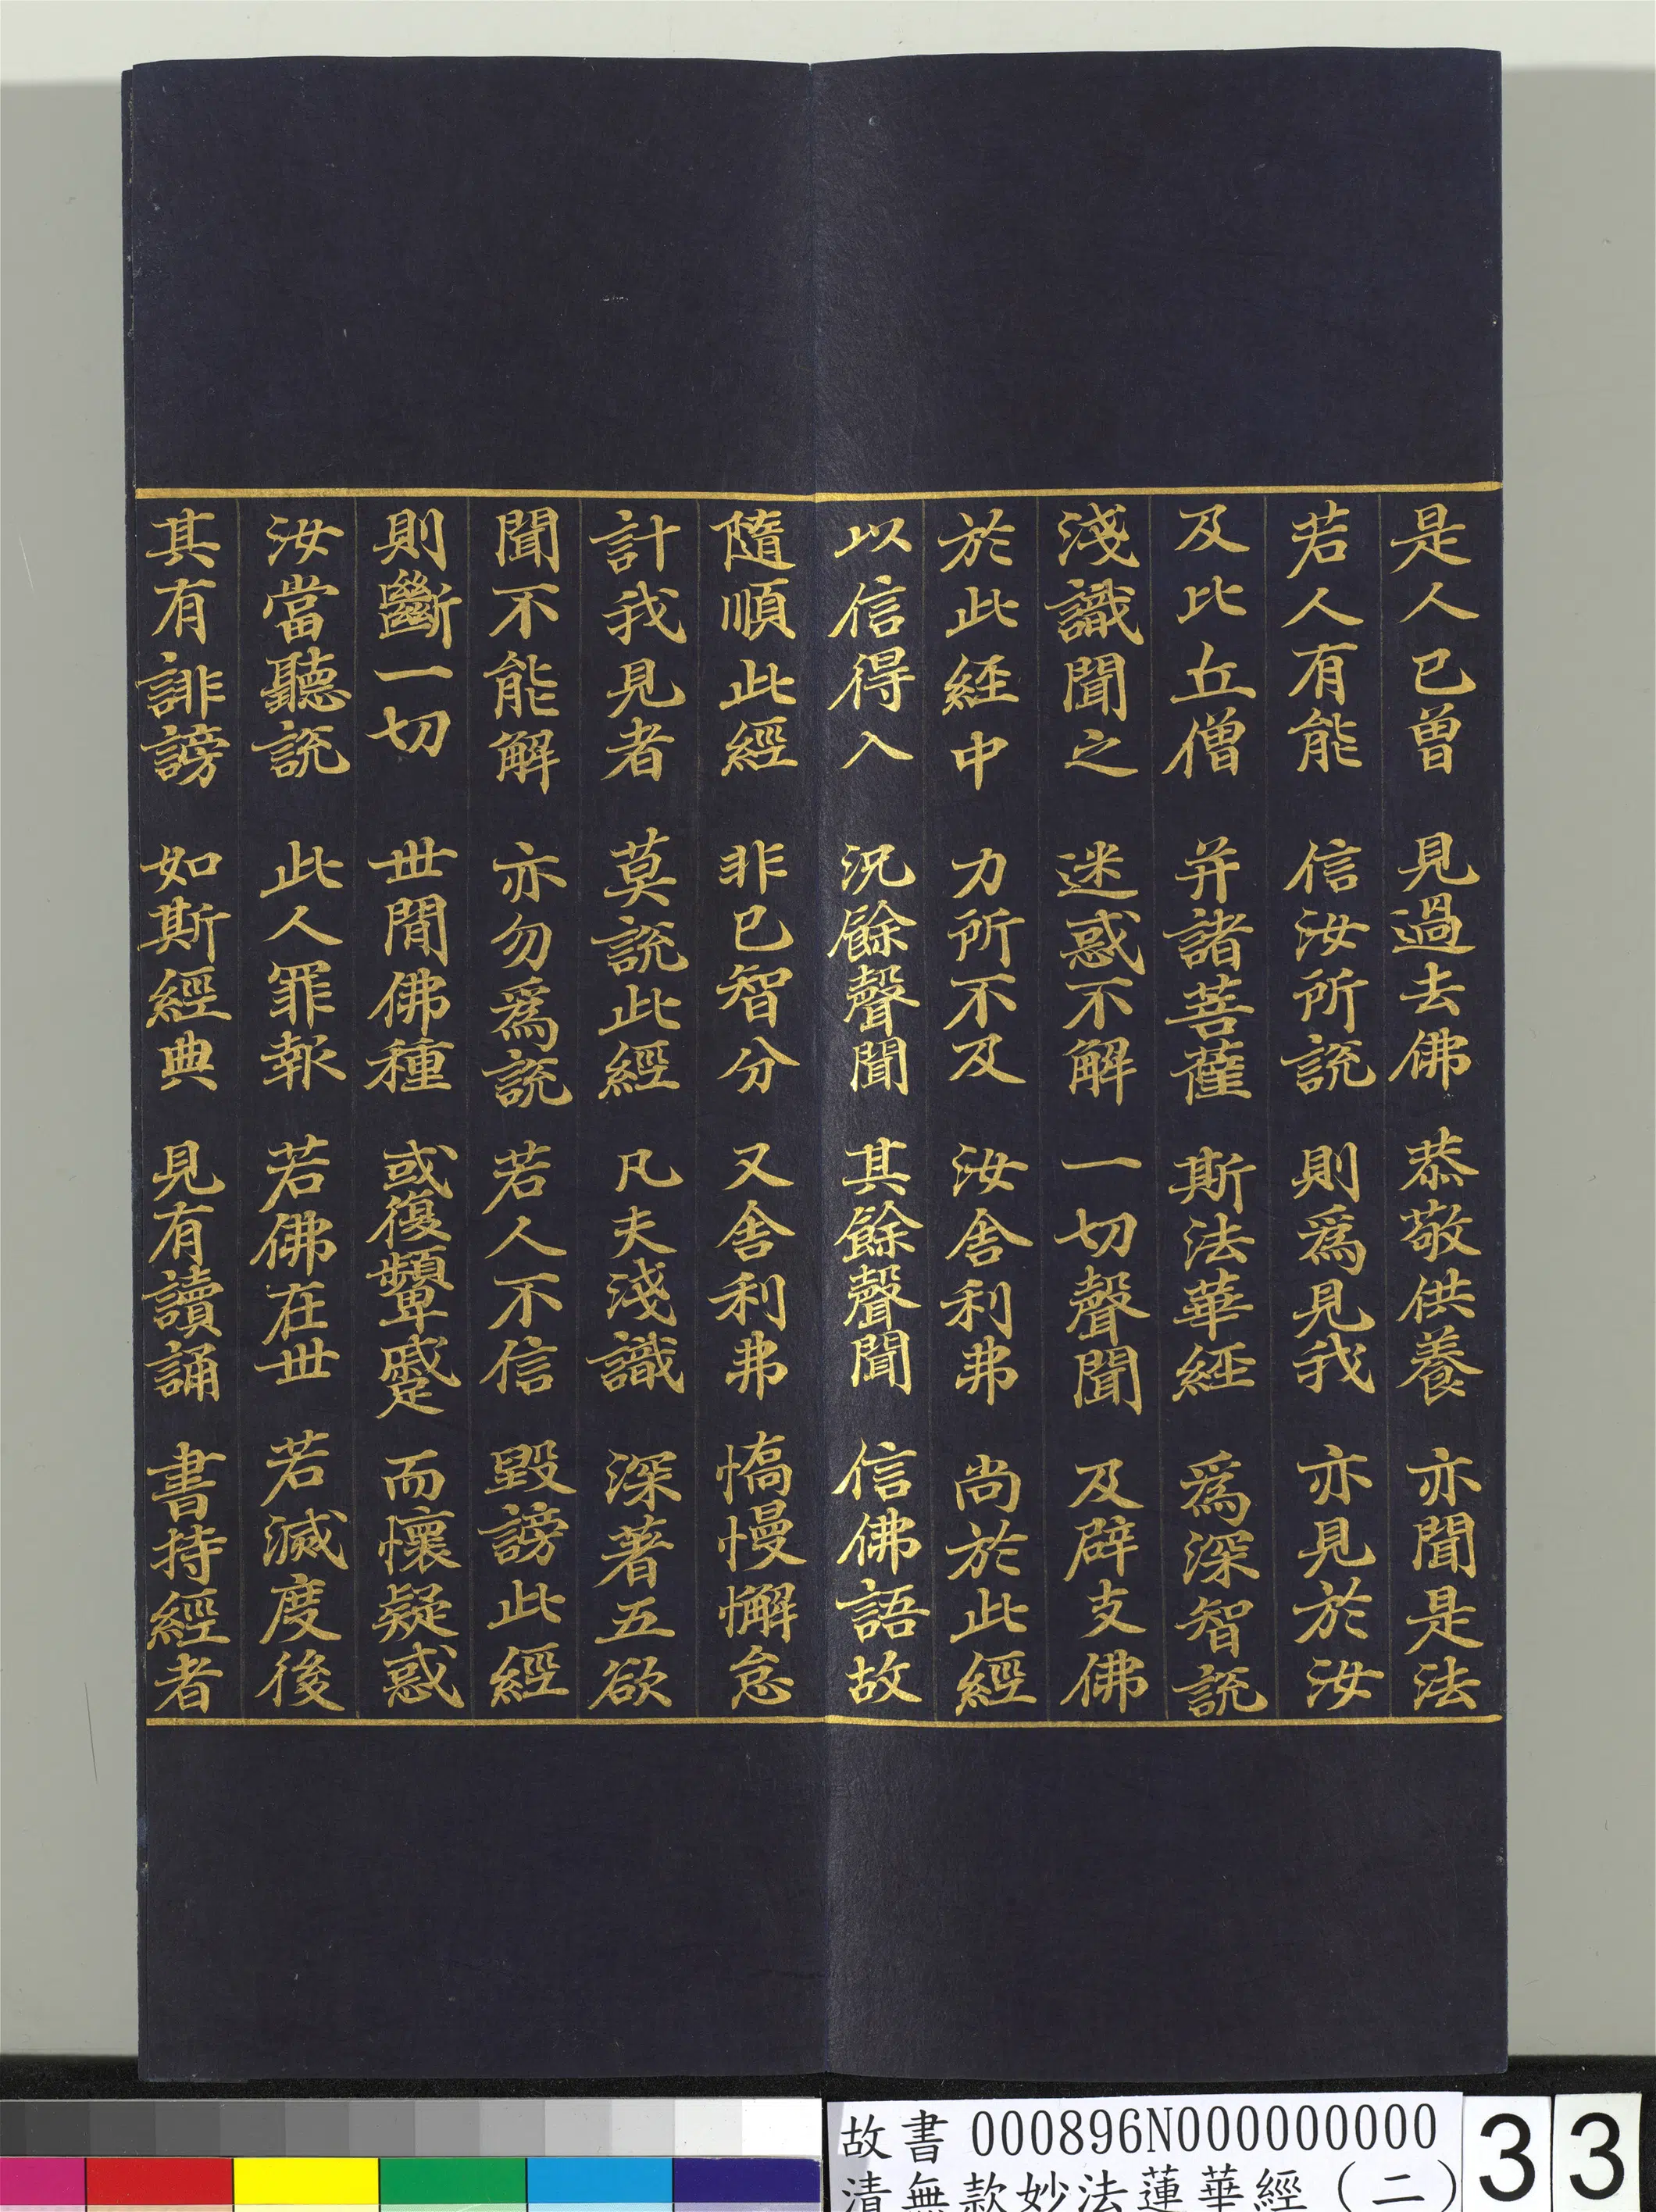 是人已曾　見過去佛　恭敬供養　亦聞是法
若人有能　信汝所說　則為見我　亦見於汝
及比丘僧　并諸菩薩　斯法華經　為深智說
淺識聞之　迷惑不解　一切聲聞　及辟支佛
於此經中　力所不及　汝舍利弗　尚於此經
以信得入　況餘聲聞　其餘聲聞　信佛語故
隨順此經　非已智分　又舍利弗　憍慢懈怠
計我見者　莫說此經　凡夫淺識　深著五欲
聞不能解　亦勿為說　若人不信　毀謗此經
則斷一切　世間佛種　或復顰蹙　而懷疑惑
汝當聽說　此人罪報　若佛在世　若滅度後
其有誹謗　如斯經典　見有讀誦　書持經者
故書 000896N000000000
清無款妙法蓮華經(二)
33